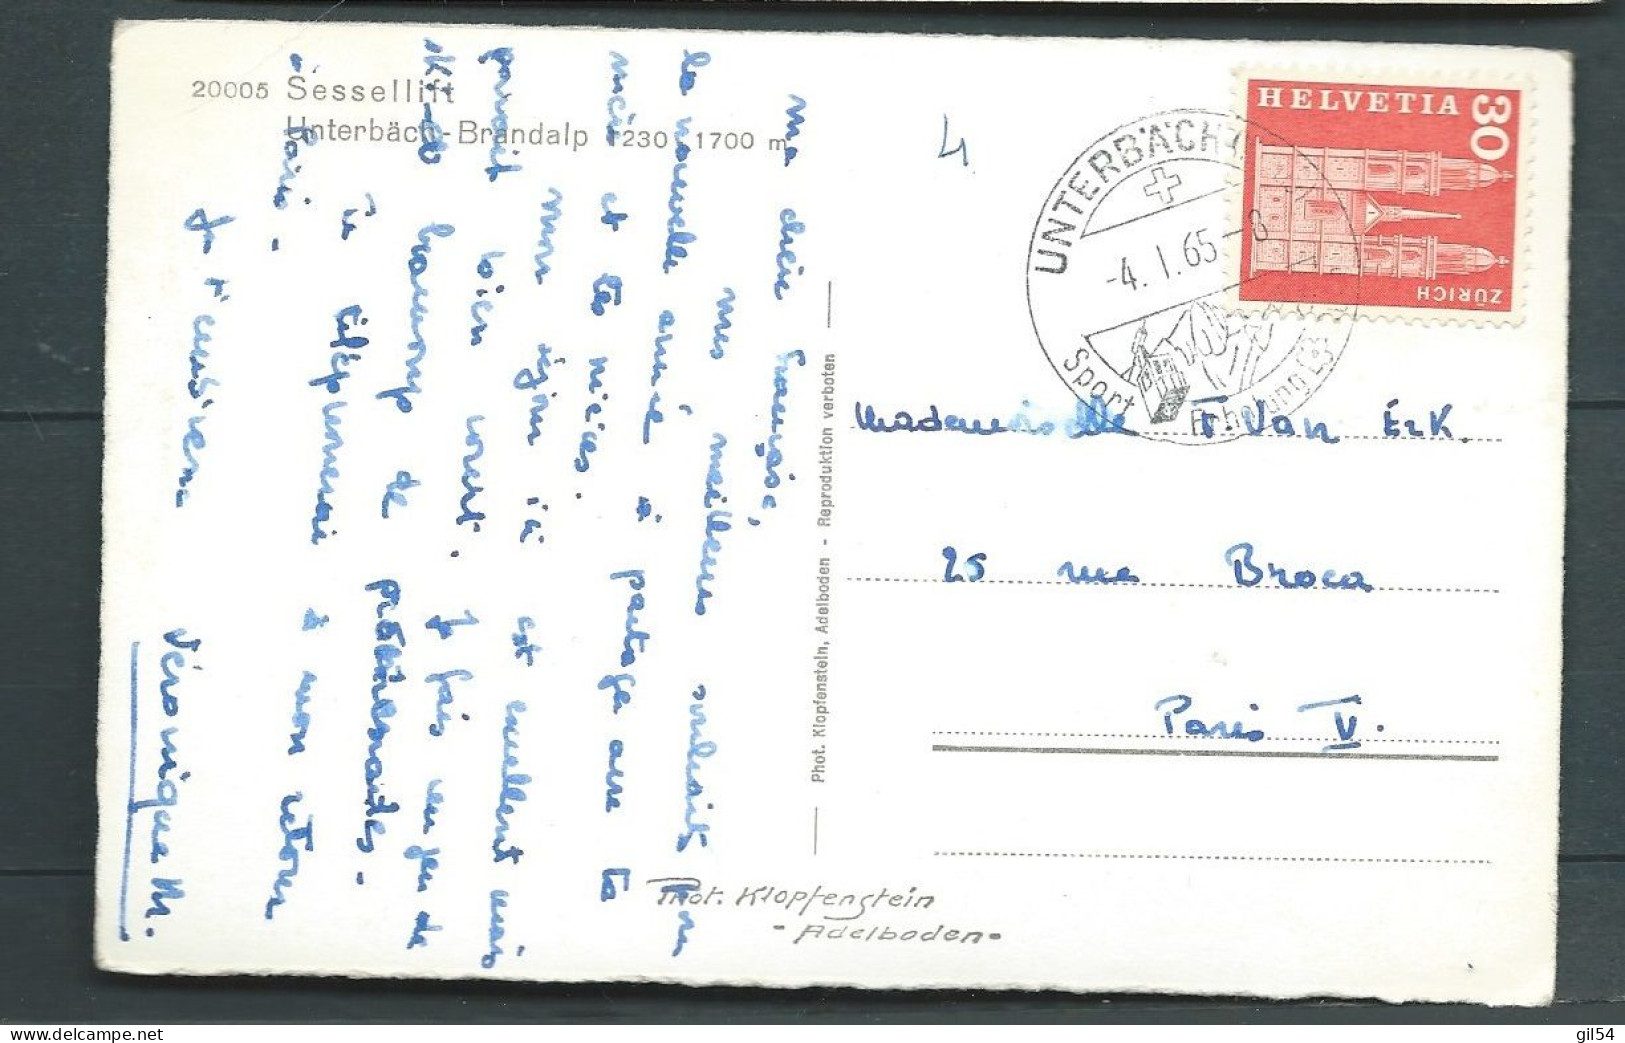 20005 Sessellift
Unterbäch-Brandalp 1230 1700 m
ma chère Françoise,
mes meilleurs souhaits pour
la nouvelle année à partager avec ta
mère et tes nièces.
Mon séjour ici est excellent mais
paraît bien court. Je fais un peu de
ski et beaucoup de promenades.
Je te téléphonerai à mon retour
à Paris.
Je t'embrasse
Véronique M.
Phot. Klopfenstein, Adelboden - Reproduktion verboten
Phot. Klopfenstein
- Adelboden -
4
UNTERBÄCH
-4. I. 65 - 8
Sport Erholung
HELVETIA
30
ZÜRICH
Mademoiselle F Van Eck.
25 rue Broca
Paris V.
gil54